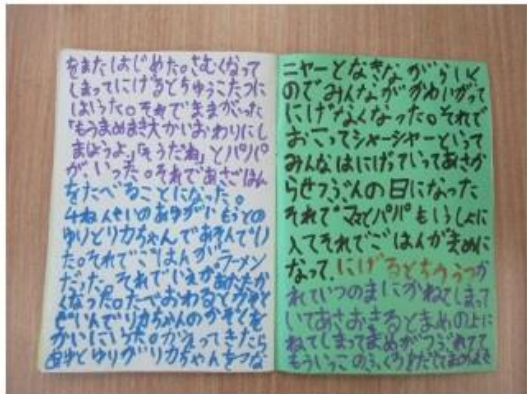 をまたはじめた。さむくなって
しまってにげるとちゅうこたつに
はいった。それでままがいった
「もうまめまき大かいおわりにし
ましょうよ。「そうだね」とパパ
がいった。それであさごはん
をたべることになった。
4ねんせいのあゆがいもうとの
ゆりとリカちゃんであそんでい
た。それでごはんがラーメン
だった。それでいえがあたたか
くなった。たべおわると
でリカちゃんのかぞくを
かいにいった。かえってきたら
あゆとゆりがリカちゃんをつな
ニャーとなきながらいく
のでみんながかわいがって
にげなくなった。それで
おこってシャーシャーといって
みんなはにげていってあさか
らせつぶんの日になった
それでママとパパもいっしょに
入てそれでごはんがまめに
なって、にげるとちゅうつか
れていつのまにかねてしまって
いてあさおきるとまめの上に
ねてしまってまめがつぶれてて
もういっこのふくろ